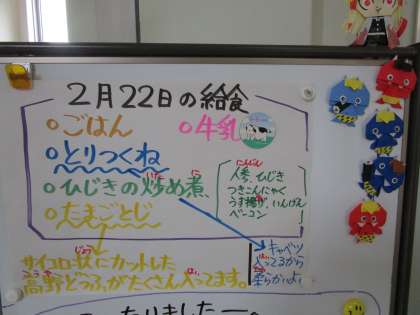 2月22日の給食
○ごはん ○牛乳
○とりつくね
○ひじきの炒め煮
○たまごとじ
にんじん
人参、ひじき
つきこんにゃく
うす揚げ、いんげん
ベーコン
キャベツ
入ってるから
柔らかいよ
サイコロ状にカットした
高野どうふがたくさん入ってます。